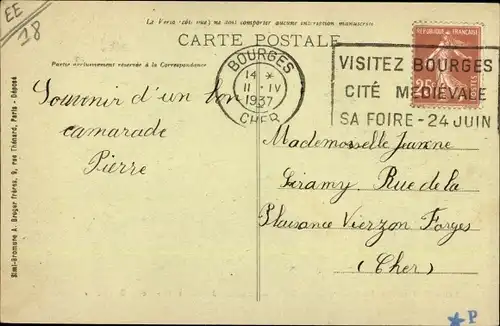 EE
18
Le Verso (côté vue) ne doit comporter aucune inscription manuscrite
CARTE POSTALE
Partie exclusivement réservée à la Correspondance
BOURGES
14 *
11 - IV
1937
CHER
VISITEZ BOURGES
CITÉ MEDIÉVALE
SA FOIRE - 24 JUIN
REPUBLIQUE FRANÇAISE
25c
POSTES
Souvenir d'un bon
camarade
Pierre
Mademosselle Jeannine
Giramy, Rue de la
Plaisance Vierzon Forges
(Cher)
Simi-Bromure A. Breger frères, 9, rue Thénard, Paris - Déposé
P